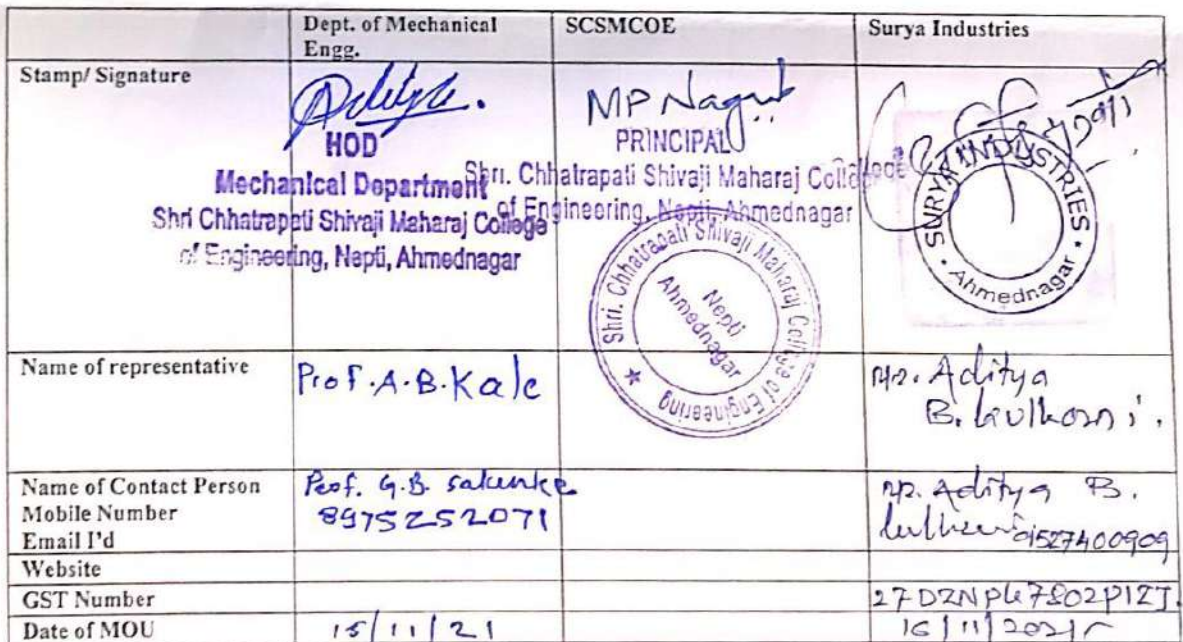 Dept. of Mechanical Engg.
SCSMCOE
Surya Industries
Stamp/ Signature
HOD
Mechanical Department
Shri Chhatrapati Shivaji Maharaj College
of Engineering, Nepti, Ahmednagar
MP Nagut
PRINCIPAL
Shri. Chhatrapati Shivaji Maharaj College
of Engineering, Nepti, Ahmednagar
Shri. Chhatrapati Shivaji Maharaj College of Engineering
Nepti
Ahmednagar
SURYA INDUSTRIES
Ahmednagar
Name of representative
Prof. A.B. Kale
Mr. Aditya
B. kulkarni.
Name of Contact Person
Mobile Number
Email I'd
Prof. G.B. salunke
8975252071
Mr. Aditya B.
Website
GST Number
Date of MOU
15/11/21